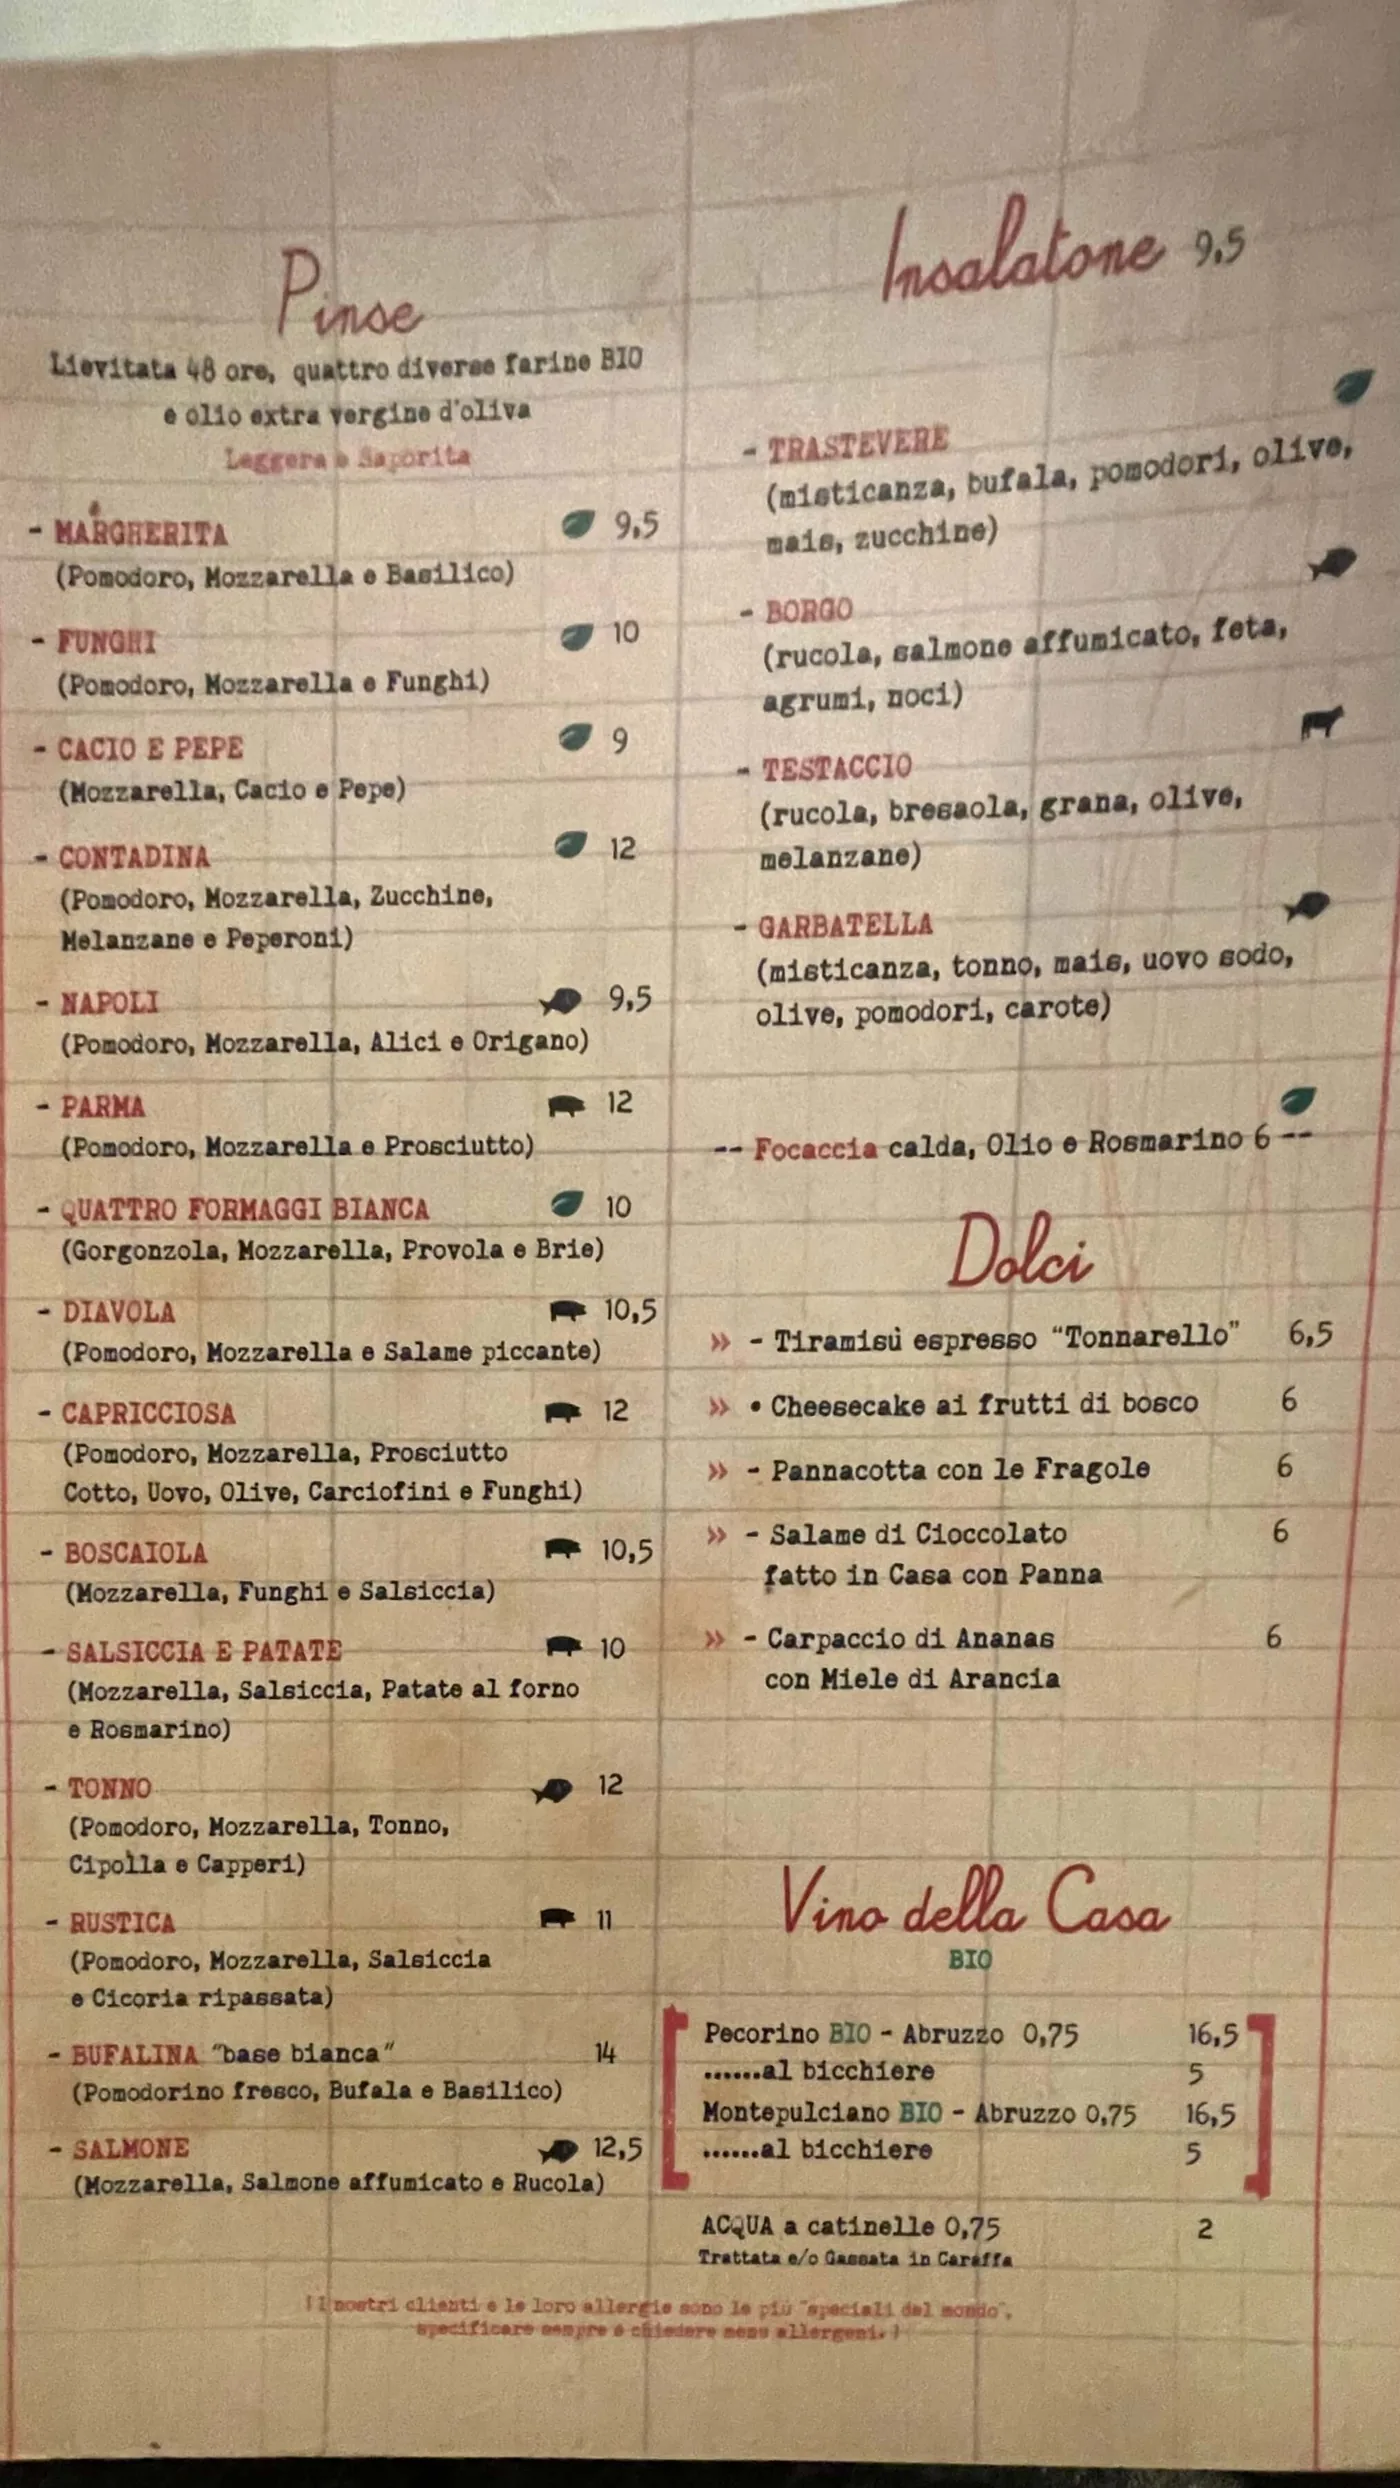 Pinse
Lievitata 48 ore, quattro diverse farine BIO
e olio extra vergine d'oliva
Leggera e Saporita
- MARGHERITA 9,5
(Pomodoro, Mozzarella e Basilico)
- FUNGHI 10
(Pomodoro, Mozzarella e Funghi)
- CACIO E PEPE 9
(Mozzarella, Cacio e Pepe)
- CONTADINA 12
(Pomodoro, Mozzarella, Zucchine,
Melanzane e Peperoni)
- NAPOLI 9,5
(Pomodoro, Mozzarella, Alici e Origano)
- PARMA 12
(Pomodoro, Mozzarella e Prosciutto)
- QUATTRO FORMAGGI BIANCA 10
(Gorgonzola, Mozzarella, Provola e Brie)
- DIAVOLA 10,5
(Pomodoro, Mozzarella e Salame piccante)
- CAPRICCIOSA 12
(Pomodoro, Mozzarella, Prosciutto
Cotto, Uovo, Olive, Carciofini e Funghi)
- BOSCAIOLA 10,5
(Mozzarella, Funghi e Salsiccia)
- SALSICCIA E PATATE 10
(Mozzarella, Salsiccia, Patate al forno
e Rosmarino)
- TONNO 12
(Pomodoro, Mozzarella, Tonno,
Cipolla e Capperi)
- RUSTICA 11
(Pomodoro, Mozzarella, Salsiccia
e Cicoria ripassata)
- BUFALINA "base bianca" 14
(Pomodorino fresco, Bufala e Basilico)
- SALMONE 12,5
(Mozzarella, Salmone affumicato e Rucola)
Insalatone 9,5
- TRASTEVERE
(misticanza, bufala, pomodori, olive,
mais, zucchine)
- BORGO
(rucola, salmone affumicato, feta,
agrumi, noci)
- TESTACCIO
(rucola, bresaola, grana, olive,
melanzane)
- GARBATELLA
(misticanza, tonno, mais, uovo sodo,
olive, pomodori, carote)
-- Focaccia calda, Olio e Rosmarino 6 --
Dolci
» - Tiramisù espresso "Tonnarello" 6,5
» • Cheesecake ai frutti di bosco 6
» - Pannacotta con le Fragole 6
» - Salame di Cioccolato 6
fatto in Casa con Panna
» - Carpaccio di Ananas 6
con Miele di Arancia
Vino della Casa
BIO
Pecorino BIO - Abruzzo 0,75 16,5
.......al bicchiere 5
Montepulciano BIO - Abruzzo 0,75 16,5
.......al bicchiere 5
ACQUA a catinelle 0,75 2
Trattata e/o Gassata in Caraffa
( I nostri clienti e le loro allergie sono le più "speciali del mondo",
specificare sempre e chiedere menu allergeni. )